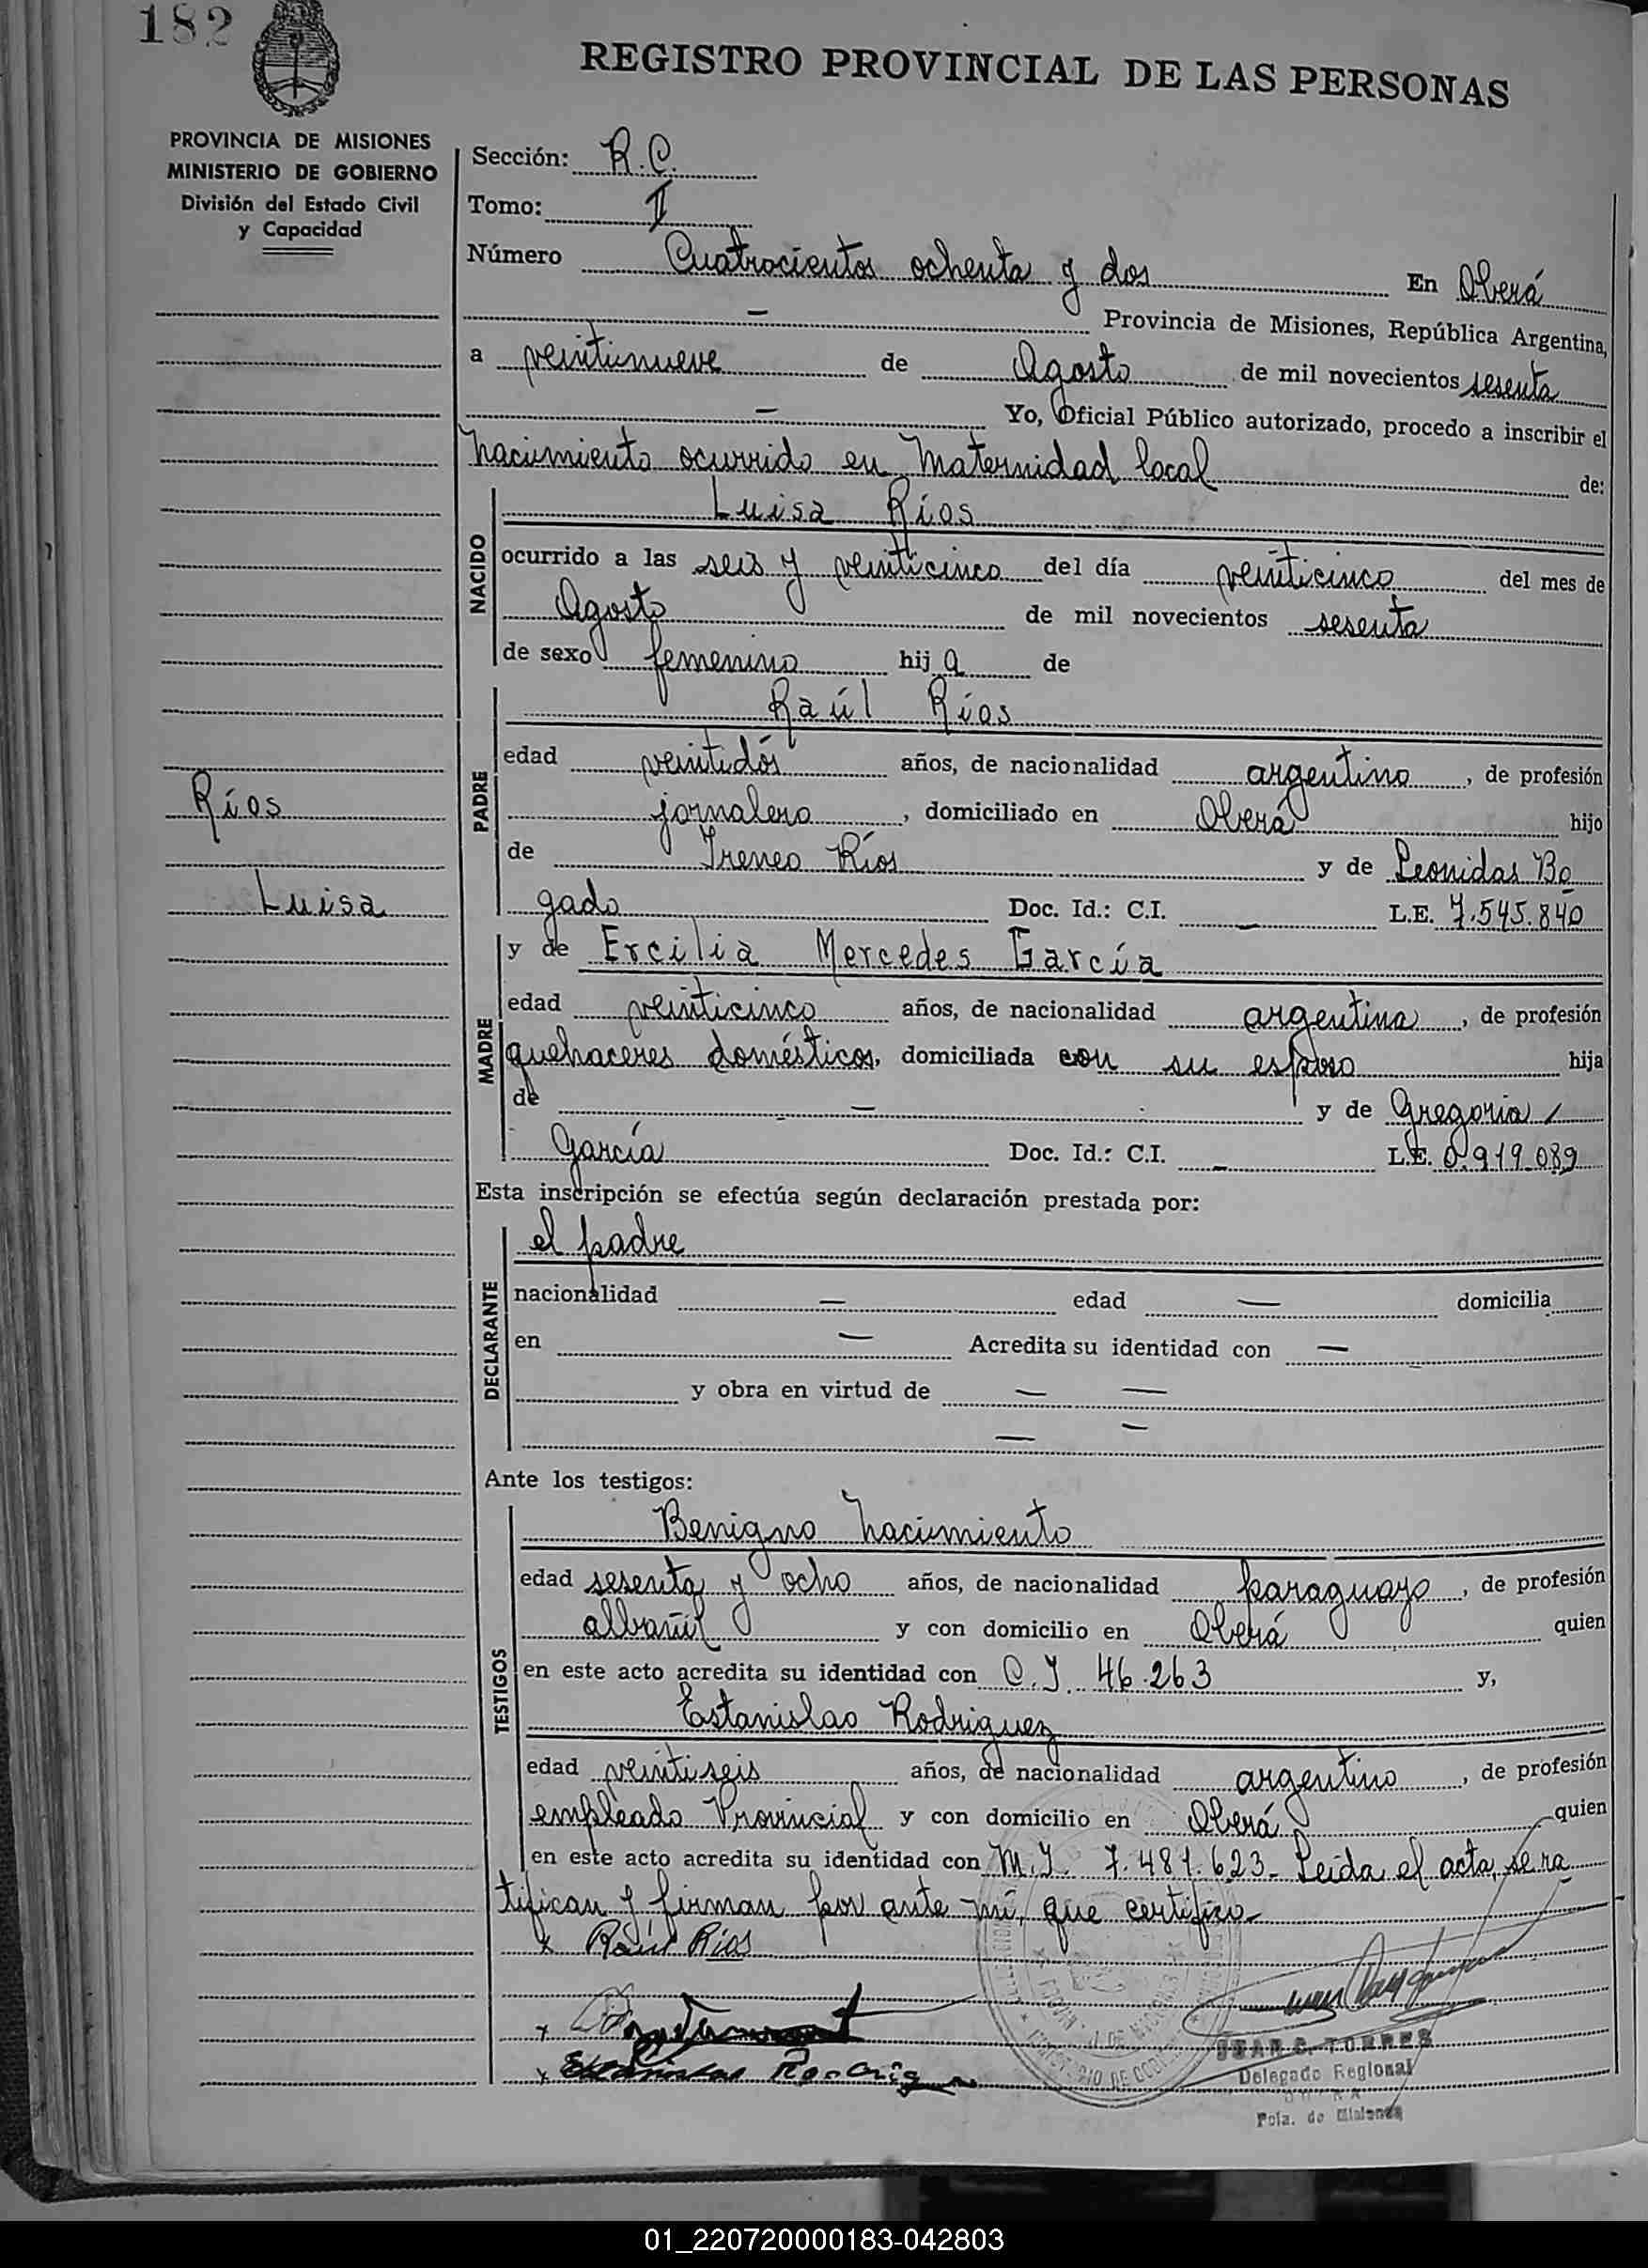 182
REGISTRO PROVINCIAL DE LAS PERSONAS
PROVINCIA DE MISIONES
MINISTERIO DE GOBIERNO
División del Estado Civil
y Capacidad
Sección: R.C.
Tomo: II
Número Cuatrocientos ochenta y dos En Oberá
— Provincia de Misiones, República Argentina,
a veintinueve de Agosto de mil novecientos sesenta
— Yo, Oficial Público autorizado, procedo a inscribir el
nacimiento ocurrido en Maternidad local de:
NACIDO
Luisa Ríos
ocurrido a las seis y veinticinco del día veinticinco del mes de
Agosto de mil novecientos sesenta
de sexo femenino hija de
PADRE
Raúl Ríos
edad veintidós años, de nacionalidad argentino, de profesión
jornalero, domiciliado en Oberá hijo
de Ireneo Ríos y de Leonidas Bo
gado Doc. Id.: C.I. — L.E. 7.545.840
Ríos
Luisa
MADRE
y de Ercilia Mercedes García
edad veinticinco años, de nacionalidad argentina, de profesión
quehaceres domésticos, domiciliada con su esposo hija
de — y de Gregoria
García Doc. Id.: C.I. — L.E. 0.919.089
Esta inscripción se efectúa según declaración prestada por:
DECLARANTE
el padre
nacionalidad — edad — domicilia
en — Acredita su identidad con —
y obra en virtud de — —
— —
Ante los testigos:
TESTIGOS
Benigno Nacimiento
edad sesenta y ocho años, de nacionalidad paraguayo, de profesión
albañil y con domicilio en Oberá quien
en este acto acredita su identidad con C.I. 46.263 y,
Estanislao Rodriguez
edad veintiseis años, de nacionalidad argentino, de profesión
empleado Provincial y con domicilio en Oberá quien
en este acto acredita su identidad con M.I. 7.481.623- Leida el acta, se ra
tifican y firman por ante mí, que certifico-
x Raúl Ríos
x
x Estanislao Rodrigu
C. TORRES
Delegado Regional
Pcia. de Misiones
01_220720000183-042803